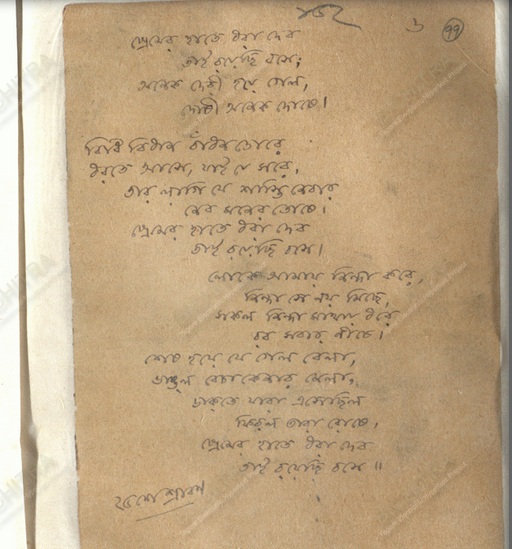 প্রেমের হাতে ধরা দেব
তাই রয়েছি বসে;
অনেক দেরী হয়ে গেল,
দোষী অনেক দোষে।
বিধি বিধান বাঁধন ডোরে
ধরতে আসে, যাই যে সরে,
তার লাগি যে শাস্তি নেবার
নেব মনের তোষে।
প্রেমের হাতে ধরা দেব
তাই রয়েছি বসে।
লোকে আমায় নিন্দা করে,
নিন্দা সে নয় মিছে,
সকল নিন্দা মাথায় ধরে
রব সবার নীচে।
শেষ হয়ে যে গেল বেলা,
ভাঙল বেচাকেনার মেলা,
ডাকতে যারা এসেছিল
ফিরল তারা রোষে,
প্রেমের হাতে ধরা দেব
তাই রয়েছি বসে॥
২৫শে শ্রাবণ